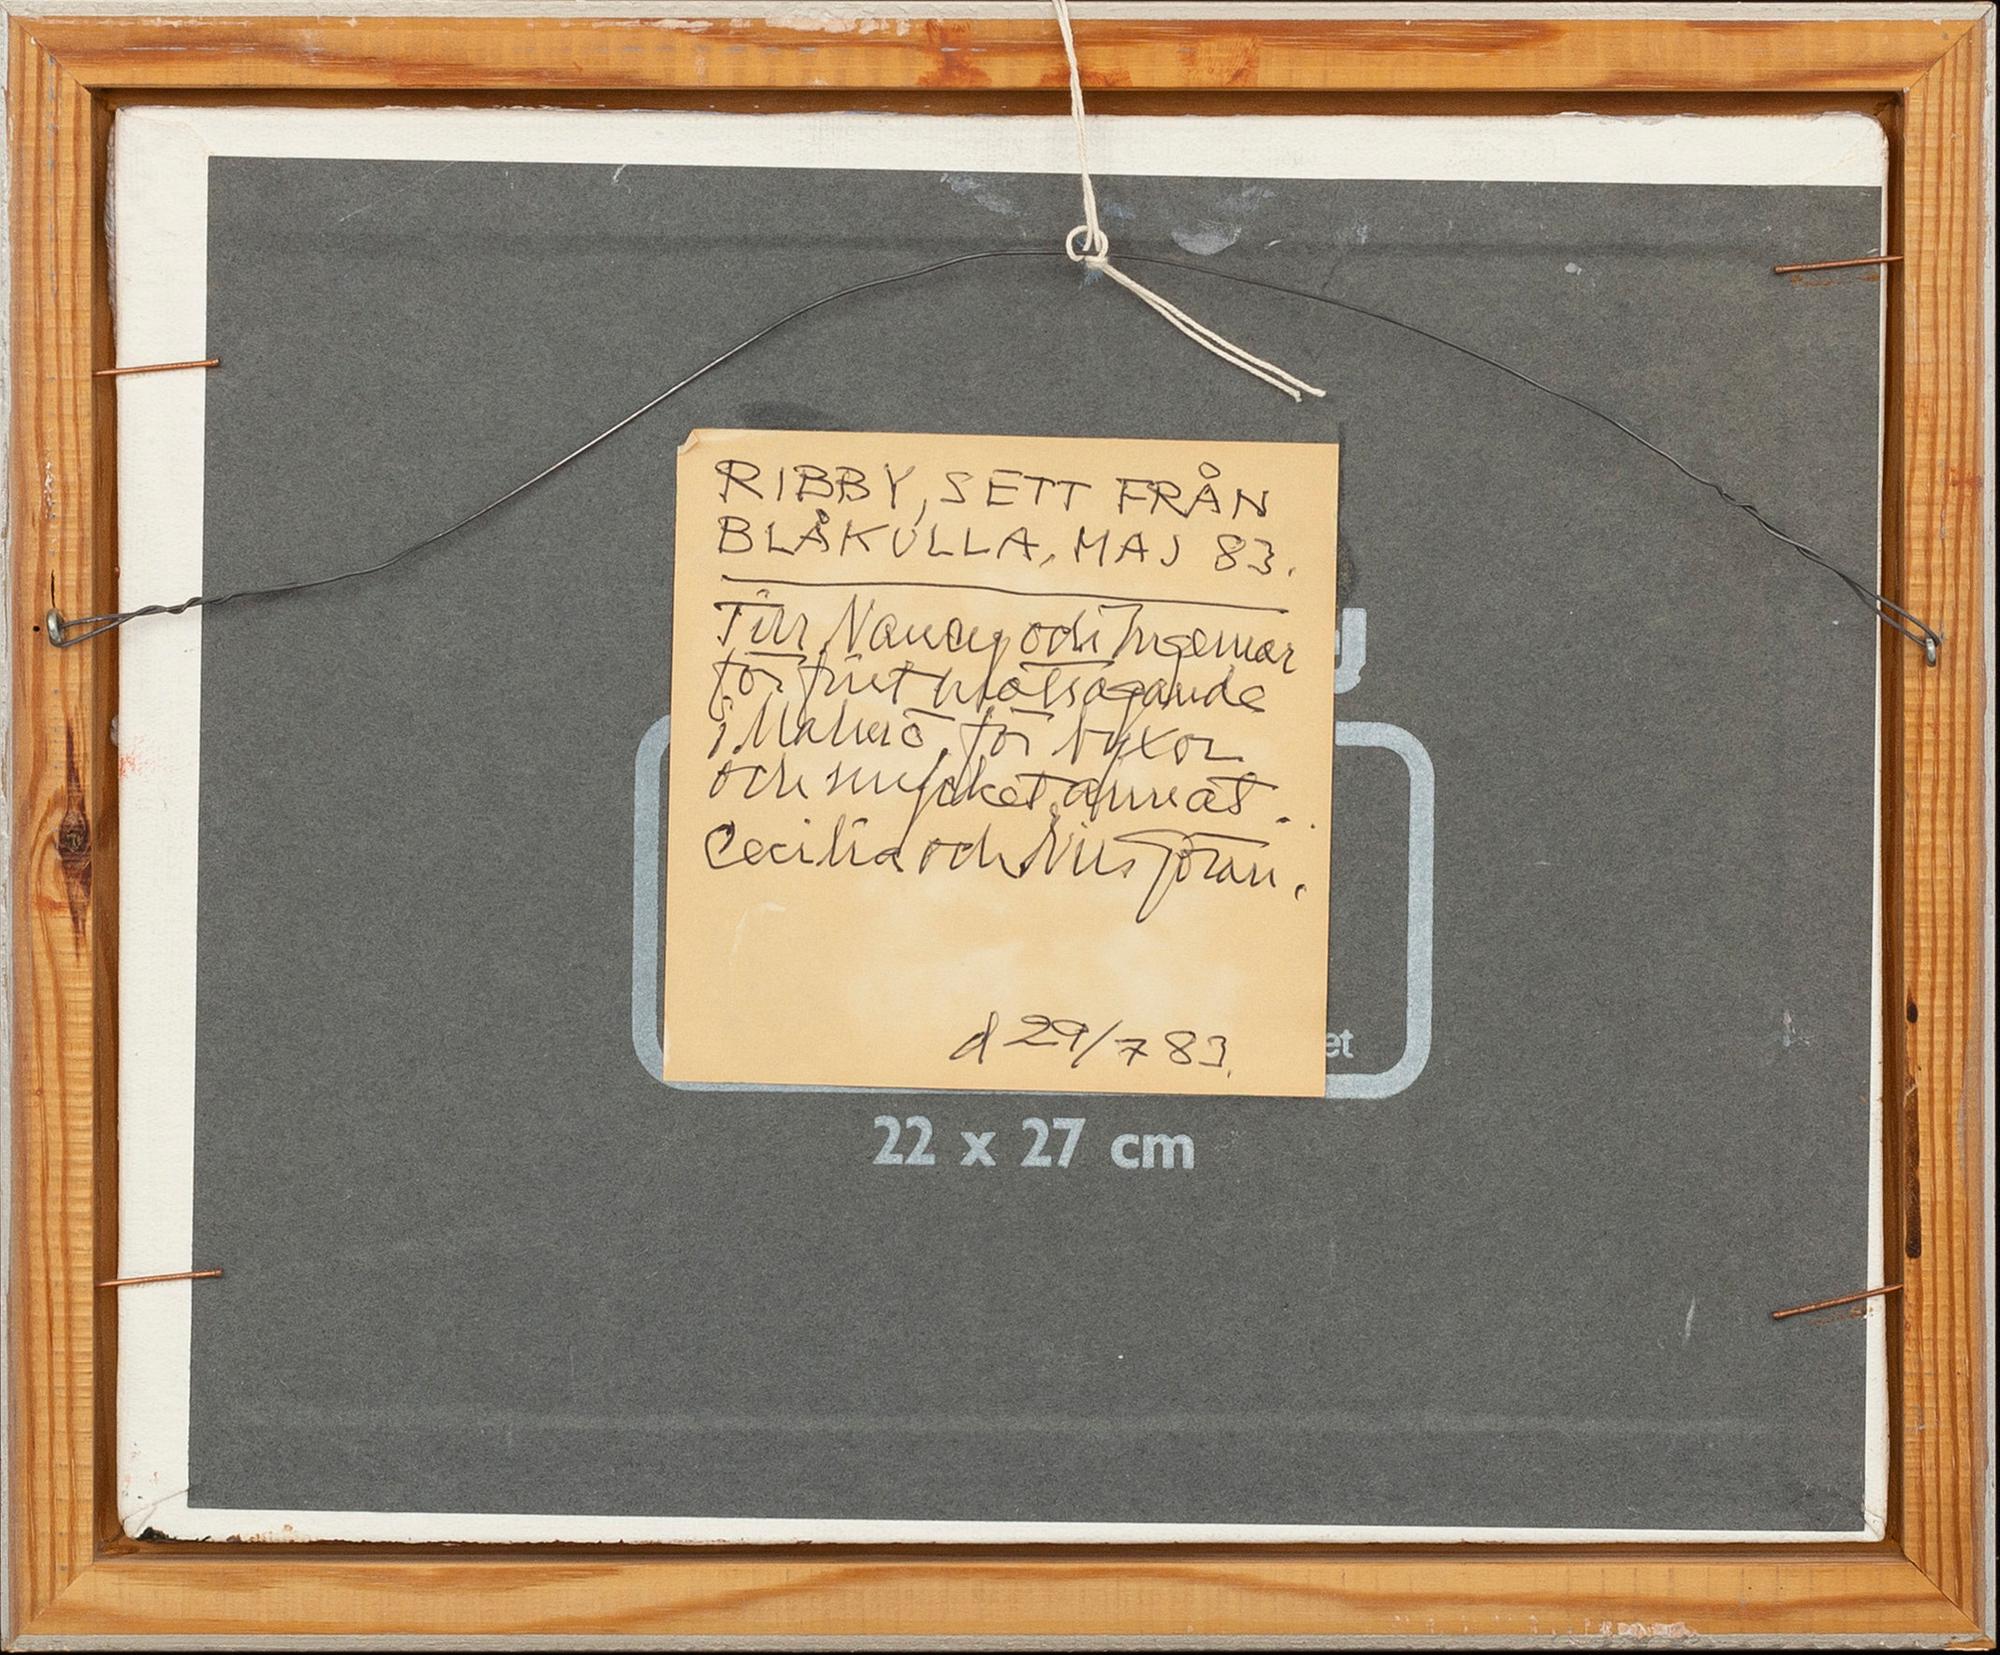 RIBBY, SETT FRÅN
BLÅKULLA, MAJ 83.
Till Nancy och Ingemar
för fint målsagande
i Malmö, för byxor
och mycket annat.
Cecilia och Nils Göran.
d 29/7 83.
et
22 x 27 cm